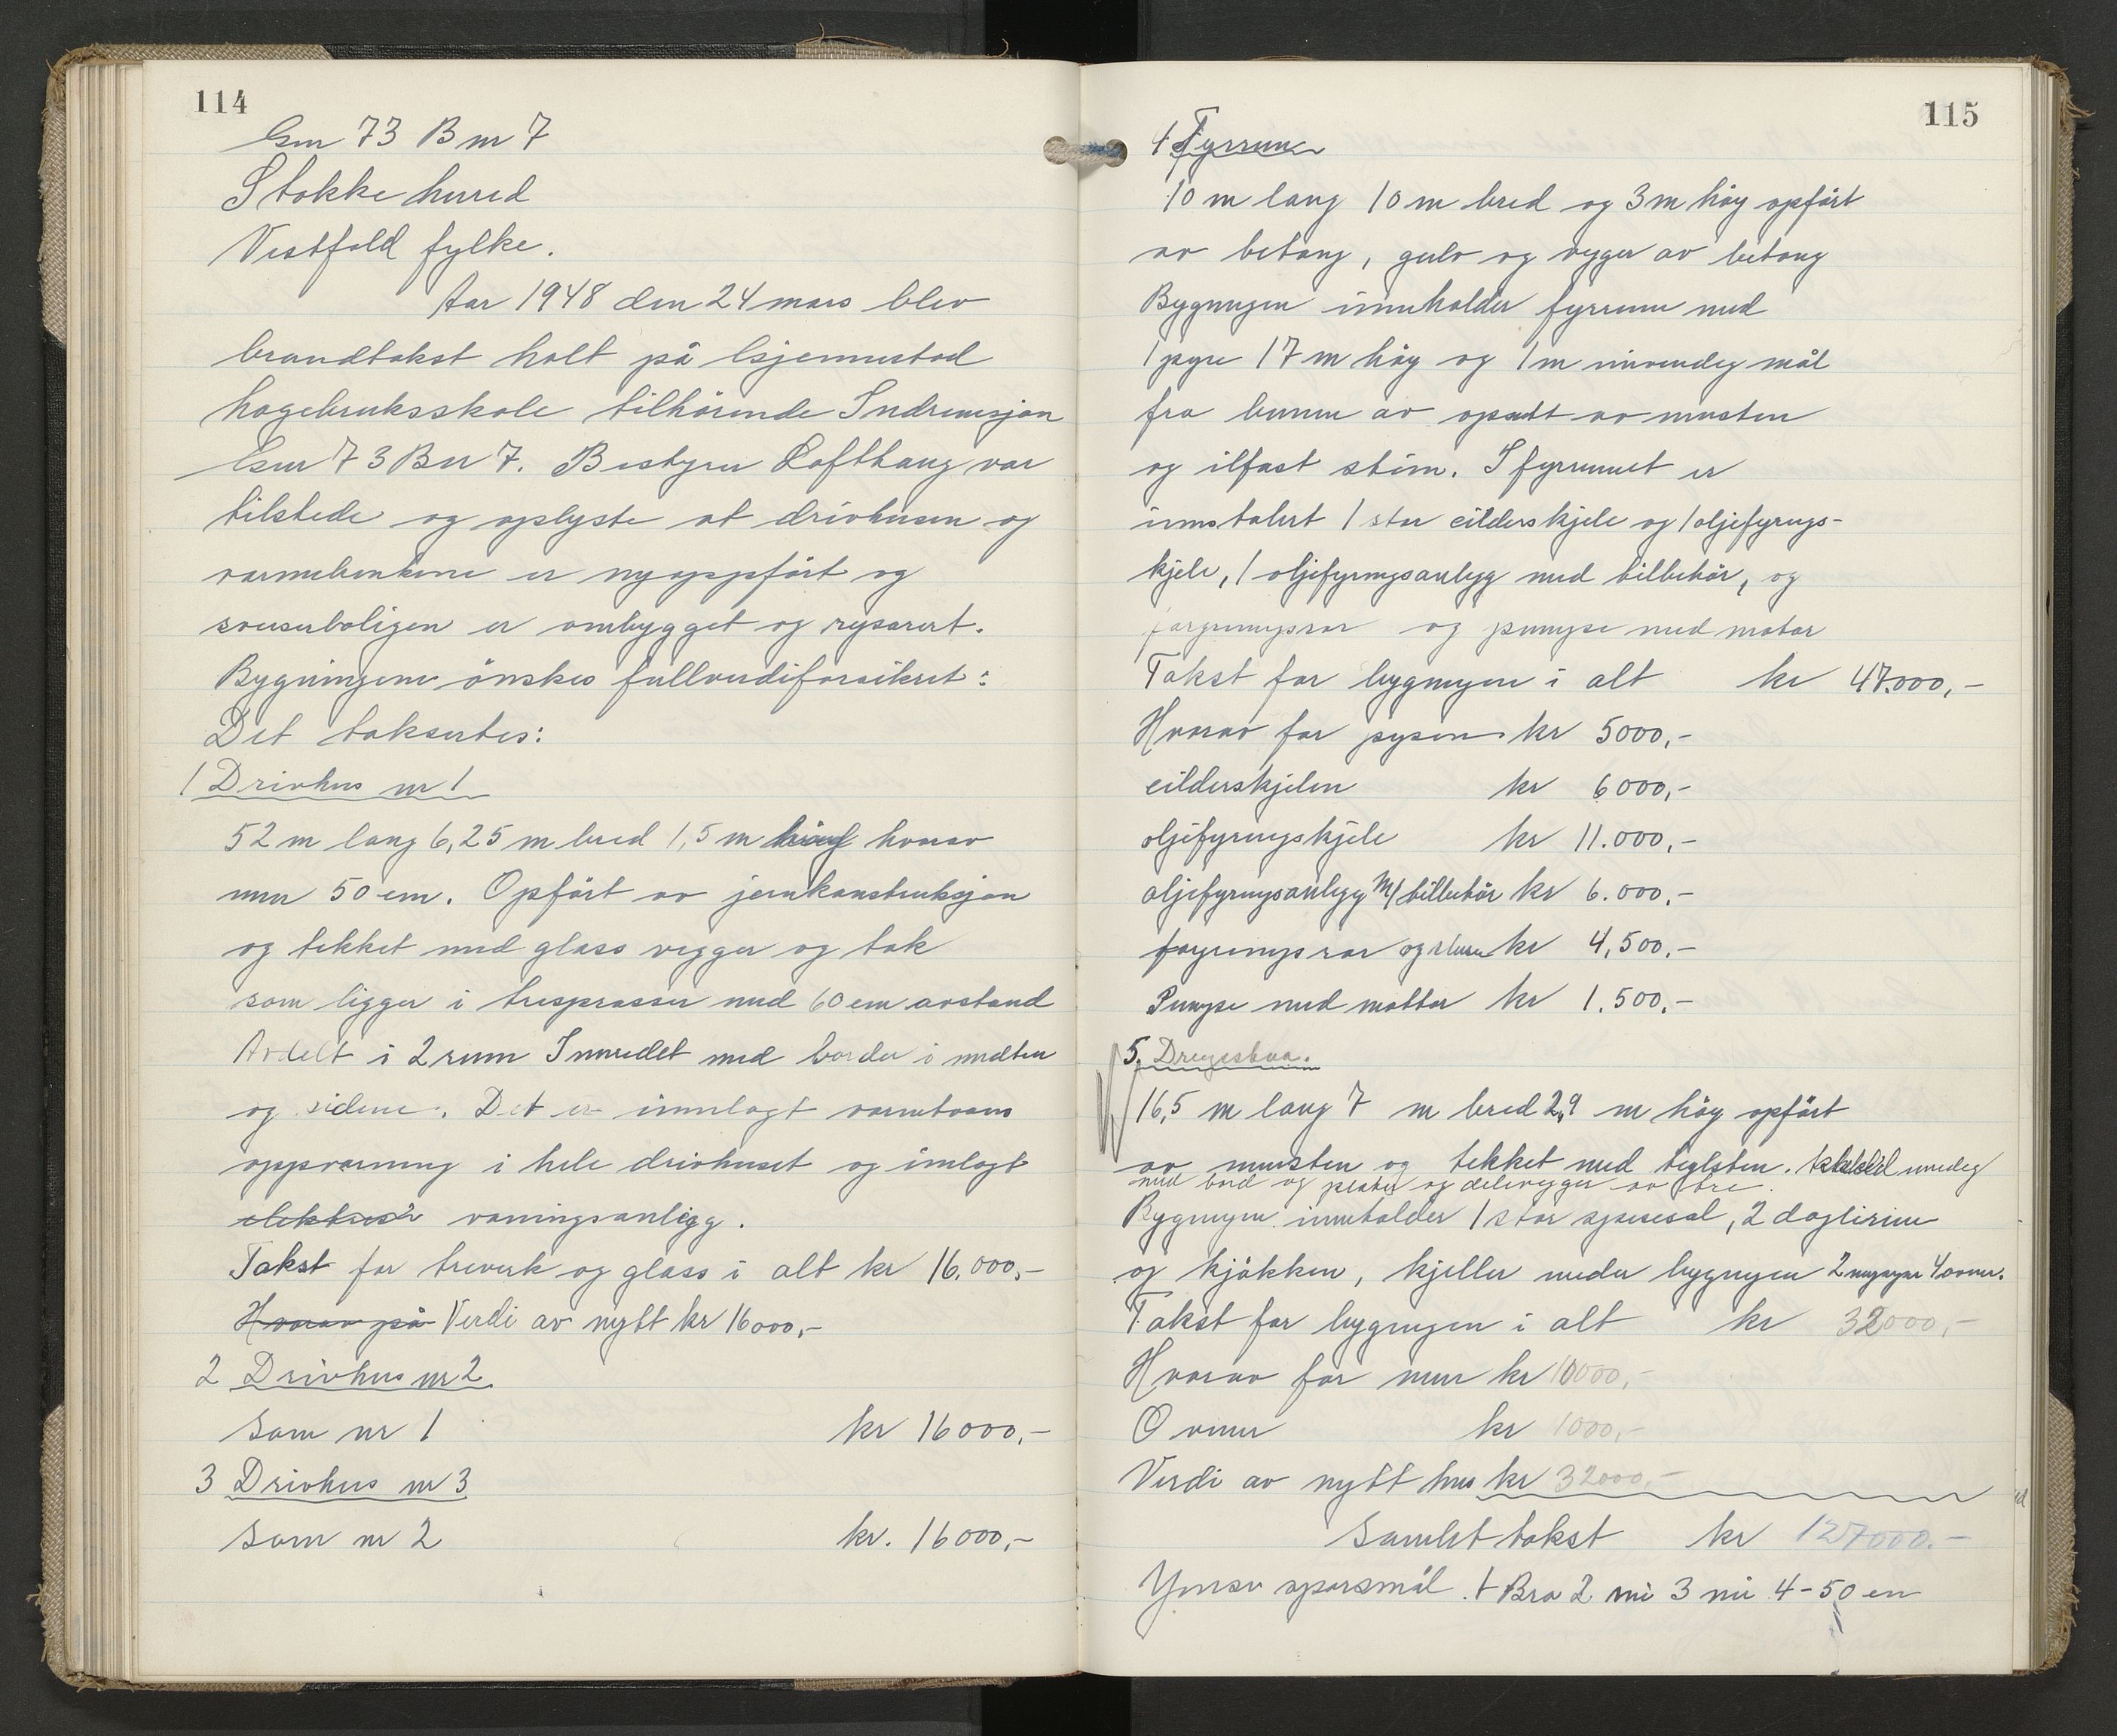 114
Gnr 73 Bnr 7
Stokke herred
Vestfold fylke.
Aar 1948 den 24 mars blev
brandtakst holt på Gjennestad
hagebruksskole tilhörende Indremisjon
Gnr 73 Bnr 7. Bestyrer Lofthaug var
tilstede og oplyste at drivhusen og
varmebenkene er nyoppfört og
sveiserboligen er ombygget og
Bygningene önskes fullverdiforsikret:
Det taksertes:
1 Drivhus nr 1
52 m lang 6,25 m bred 1,5 m höy hvorav
mur 50 cm. Opfört av jernkonstruksjon
og tekket med glass vegger og tak
som ligger i tresprosser med 60 cm avstand
Avdelt i 2 rum Innredet med border i midten
og sidene. Det er innlagt varmtvans
oppvarming i hele drivhuset og innlagt
elektrisk vaningsanlegg.
Takst for treverk og glass i alt kr 16.000,-
Hvorav på Verdi av nytt kr 16000,-
2 Drivhus nr 2
Som nr 1 kr 16000,-
3 Drivhus nr 3
Som nr 2 kr. 16000,-
115
4 Fyrrum
10 m lang 10 m bred og 3 m höy opfört
av betong, gulv og vegger av betong
Bygningen inneholder fyrrum med
1 pipe 17 m höy og 1 m innvendig mål
fra bunn av opsatt av mursten
og ilfast stein. I fyrrummet er
innstalert 1 stor eilderskjele og 1 oljefyrings-
kjele, 1 oljefyringsanlegg med tilbehör, og
forgreningsrör og pumpe med motor
Takst for bygningen i alt kr 47.000,-
Hvorav for pipen kr 5000,-
eilderskjelen kr 6000,-
oljefyringskjele kr 11.000,-
oljefyringsanlegg m/ tilbehör kr 6.000,-
forgreningsrör og kr 4,500.-
Pumpe med mottor kr 1.500.-
5.
16,5 m lang 7 m bred 2,9 m höy opfört
av mursten og tekket med teglsten. inndeig
med bord og plater og delevegger av tre.
Bygningen inneholder 1 stor spisesal, 2 daglirum
og kjökken, kjeller under bygningen 2 murpiper 4 ovner.
Takst for bygningen i alt kr 32000,-
Hvorav for mur kr 10000,-
Ovner kr 1000,-
Verdi av nytt hus kr 32000,-
Samlet takst kr 127000.-
Ymse sporsmål. 1 Bra 2 nei 3 nei 4-50 en